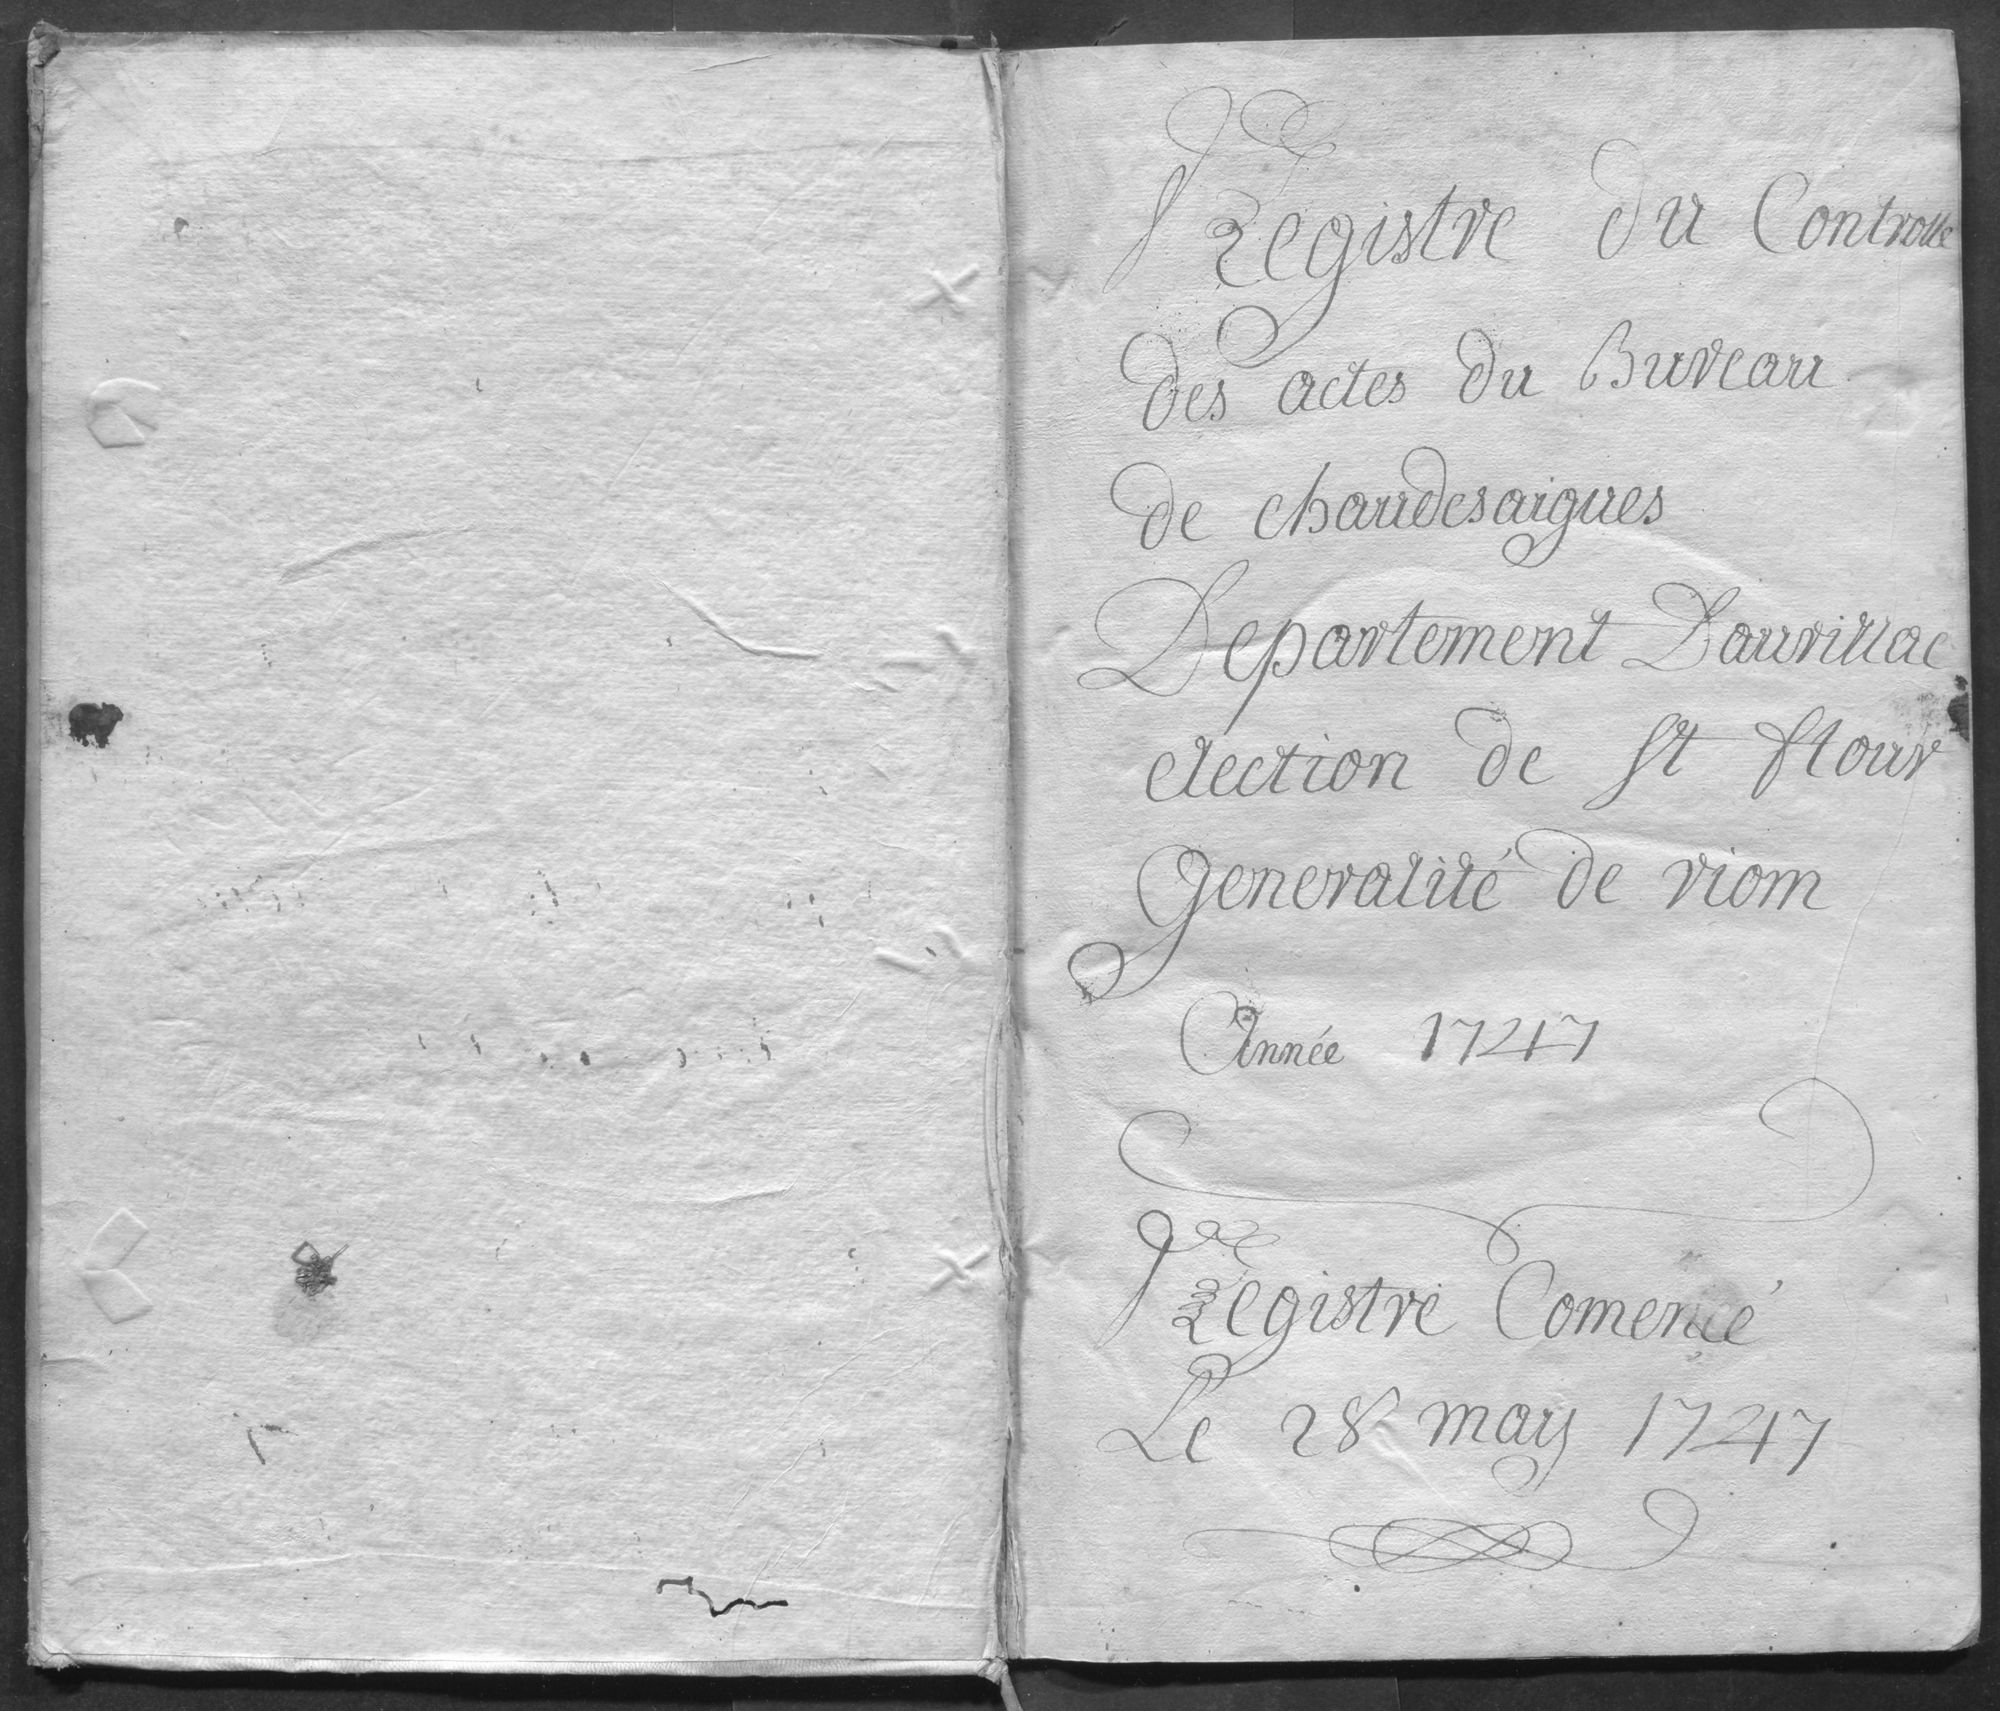 Registre du Controlle
des actes du Bureau
de chaudesaigues
Departement Daurillac
election de st flour
generalité de riom
Année 1747
Registre Comencé
Le 28 may 1747